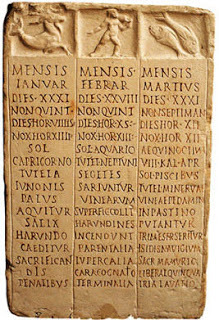 MENSIS
IANVAR
DIES·XXXI
NON·QVINT
DIES HOR VIIIIS
NOX HOR XIIII
SOL
CAPRICORNO
TVTELA
IVNONIS
PALVS
AQVITVR
SALIX
HARVNDO
CAEDITVR
SACRIFICAN
DIS
PENATIBVS
MENSIS
FEBRAR
DIES·XXVIII
NON·QVINT
DIES·HOR·XS
NOX HOR XIII
SOL·AQVARIO
TVTEL·NEPTVNI
SEGETES
SARIVNTVR
VINEARVM
SVPERFIC·COLIT
HARVNDINES
INCENDVNT
PARENTALIA
LVPERCALIA
CARA·COGNATIO
TERMINALIA
MENSIS
MARTIVS
DIES·XXXI
NON·SEPTIMAN
DIES·HOR·XII
NOX·HOR·XII
AEQVINOCTIVM
VIII·KAL·APR
SOL·PISCIBVS
TVTEL·MINERVAE
VINEAE·PEDAMIN
IN PASTINO
PVTANTVR
TRIMESTR·SERITVR
ISIDIS·NAVIGIVM
SACR·MAMVRIO
LIBERAL·QVINQVA
TRIA·LAVATIO